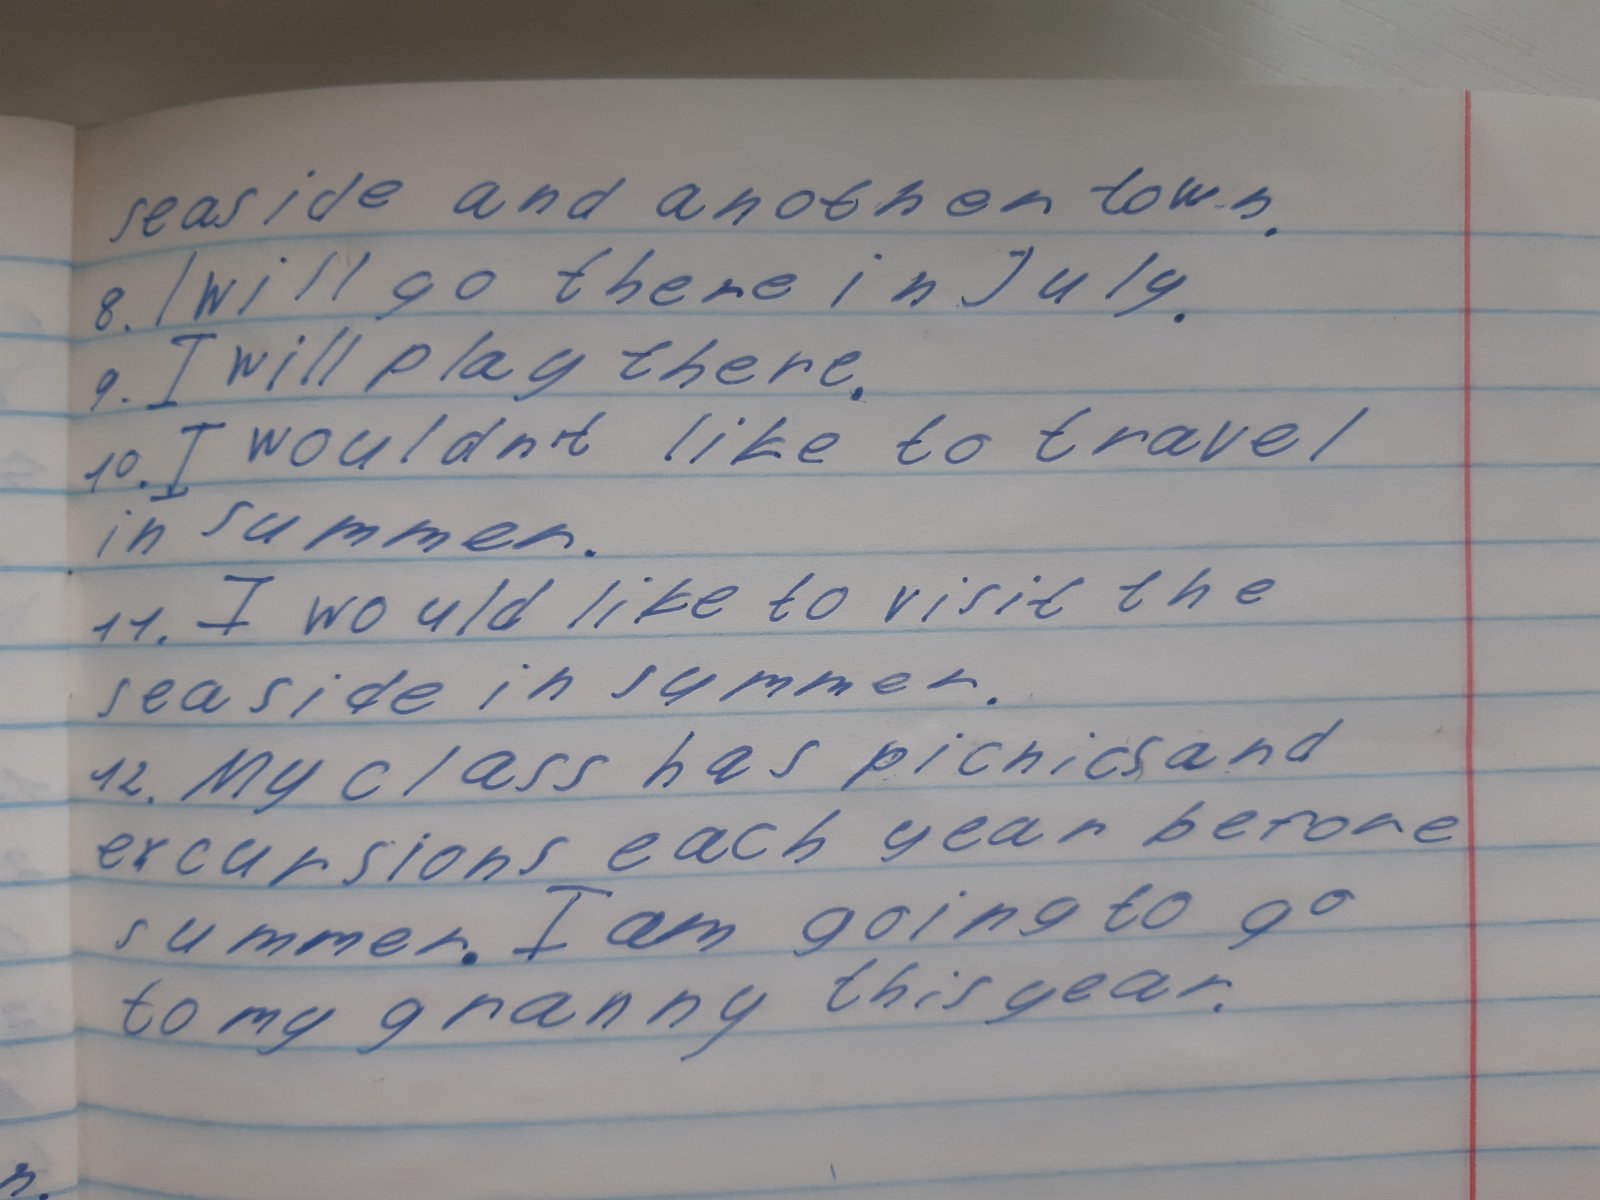 seaside and another town.
8. I will go there in July.
9. I will play there.
10. I wouldn't like to travel
in summer.
11. I would like to visit the
seaside in summer.
12. My class has picnics and
excursions each year before
summer. I am going to go
to my granny this year.